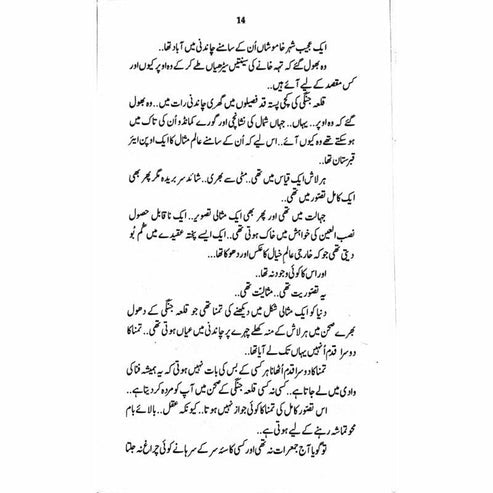 14
ایک عجیب شہرِ خاموشاں اُن کے سامنے چاندنی میں آباد تھا..
وہ بھول گئے کہ تہہ خانے کی سینتیس سیڑھیاں طے کر کے وہ اوپر کیوں اور
کس مقصد کے لیے آئے ہیں..
قلعہ جنگی کی کچی پستہ قد فصیلوں میں گھری چاندنی رات میں.. وہ بھول
گئے کہ وہ اوپر.. یہاں.. جہاں شمال کی نشانچی اور گورے کمانڈو اُن کی تاک میں
ہو سکتے تھے وہ کیوں آئے.. اس لیے کہ اُن کے سامنے عالمِ مثال کا ایک اوپن ایئر
قبرستان تھا..
ہر لاش ایک قیاس میں تھی.. مٹی سے بھری.. شائد سر بریدہ مگر پھر بھی
ایک کامل تصّور میں تھی..
جہالت میں تھی اور پھر بھی ایک مثالی تصویر.. ایک ناقابلِ حصول
نصب العین کی خواہش میں خاک ہوتی تھی.. ایک ایسے پختہ عقیدے میں گُم بُو
دیتی تھی جو کہ خارجی عالمِ خیال کا عکس اور دھوکا تھا...
اور اس کا کوئی وجود نہ تھا..
یہ تصّوریت تھی.. مثالیّت تھی..
دنیا کو ایک مثالی شکل میں دیکھنے کی تمنا تھی جو قلعہ جنگی کے دھول
بھرے صحن میں ہر لاش کے منہ کھلے چہرے پر چاندنی میں عیاں ہوتی تھی.. تمنا کا
دوسرا قدم اُنہیں یہاں تک لے آیا تھا..
تمنا کا دوسرا قدم اُٹھانا ہر کسی کے بس کی بات نہیں ہوتی کہ یہ ہمیشہ فنا کی
وادی میں لے جاتا ہے.. کسی نہ کسی قلعہ جنگی کے صحن میں آپ کو مردہ کر دیتا ہے..
اس تصّورِ کامل کی تمنا کا کوئی جواز نہیں ہوتا.. کیونکہ عقل.. بالائے بام
محو تماشہ رہنے کے لیے ہوتی ہے..
تو گویا آج جمعرات نہ تھی اور کسی کاسۂ سر کے سرہانے کوئی چراغ نہ جلتا